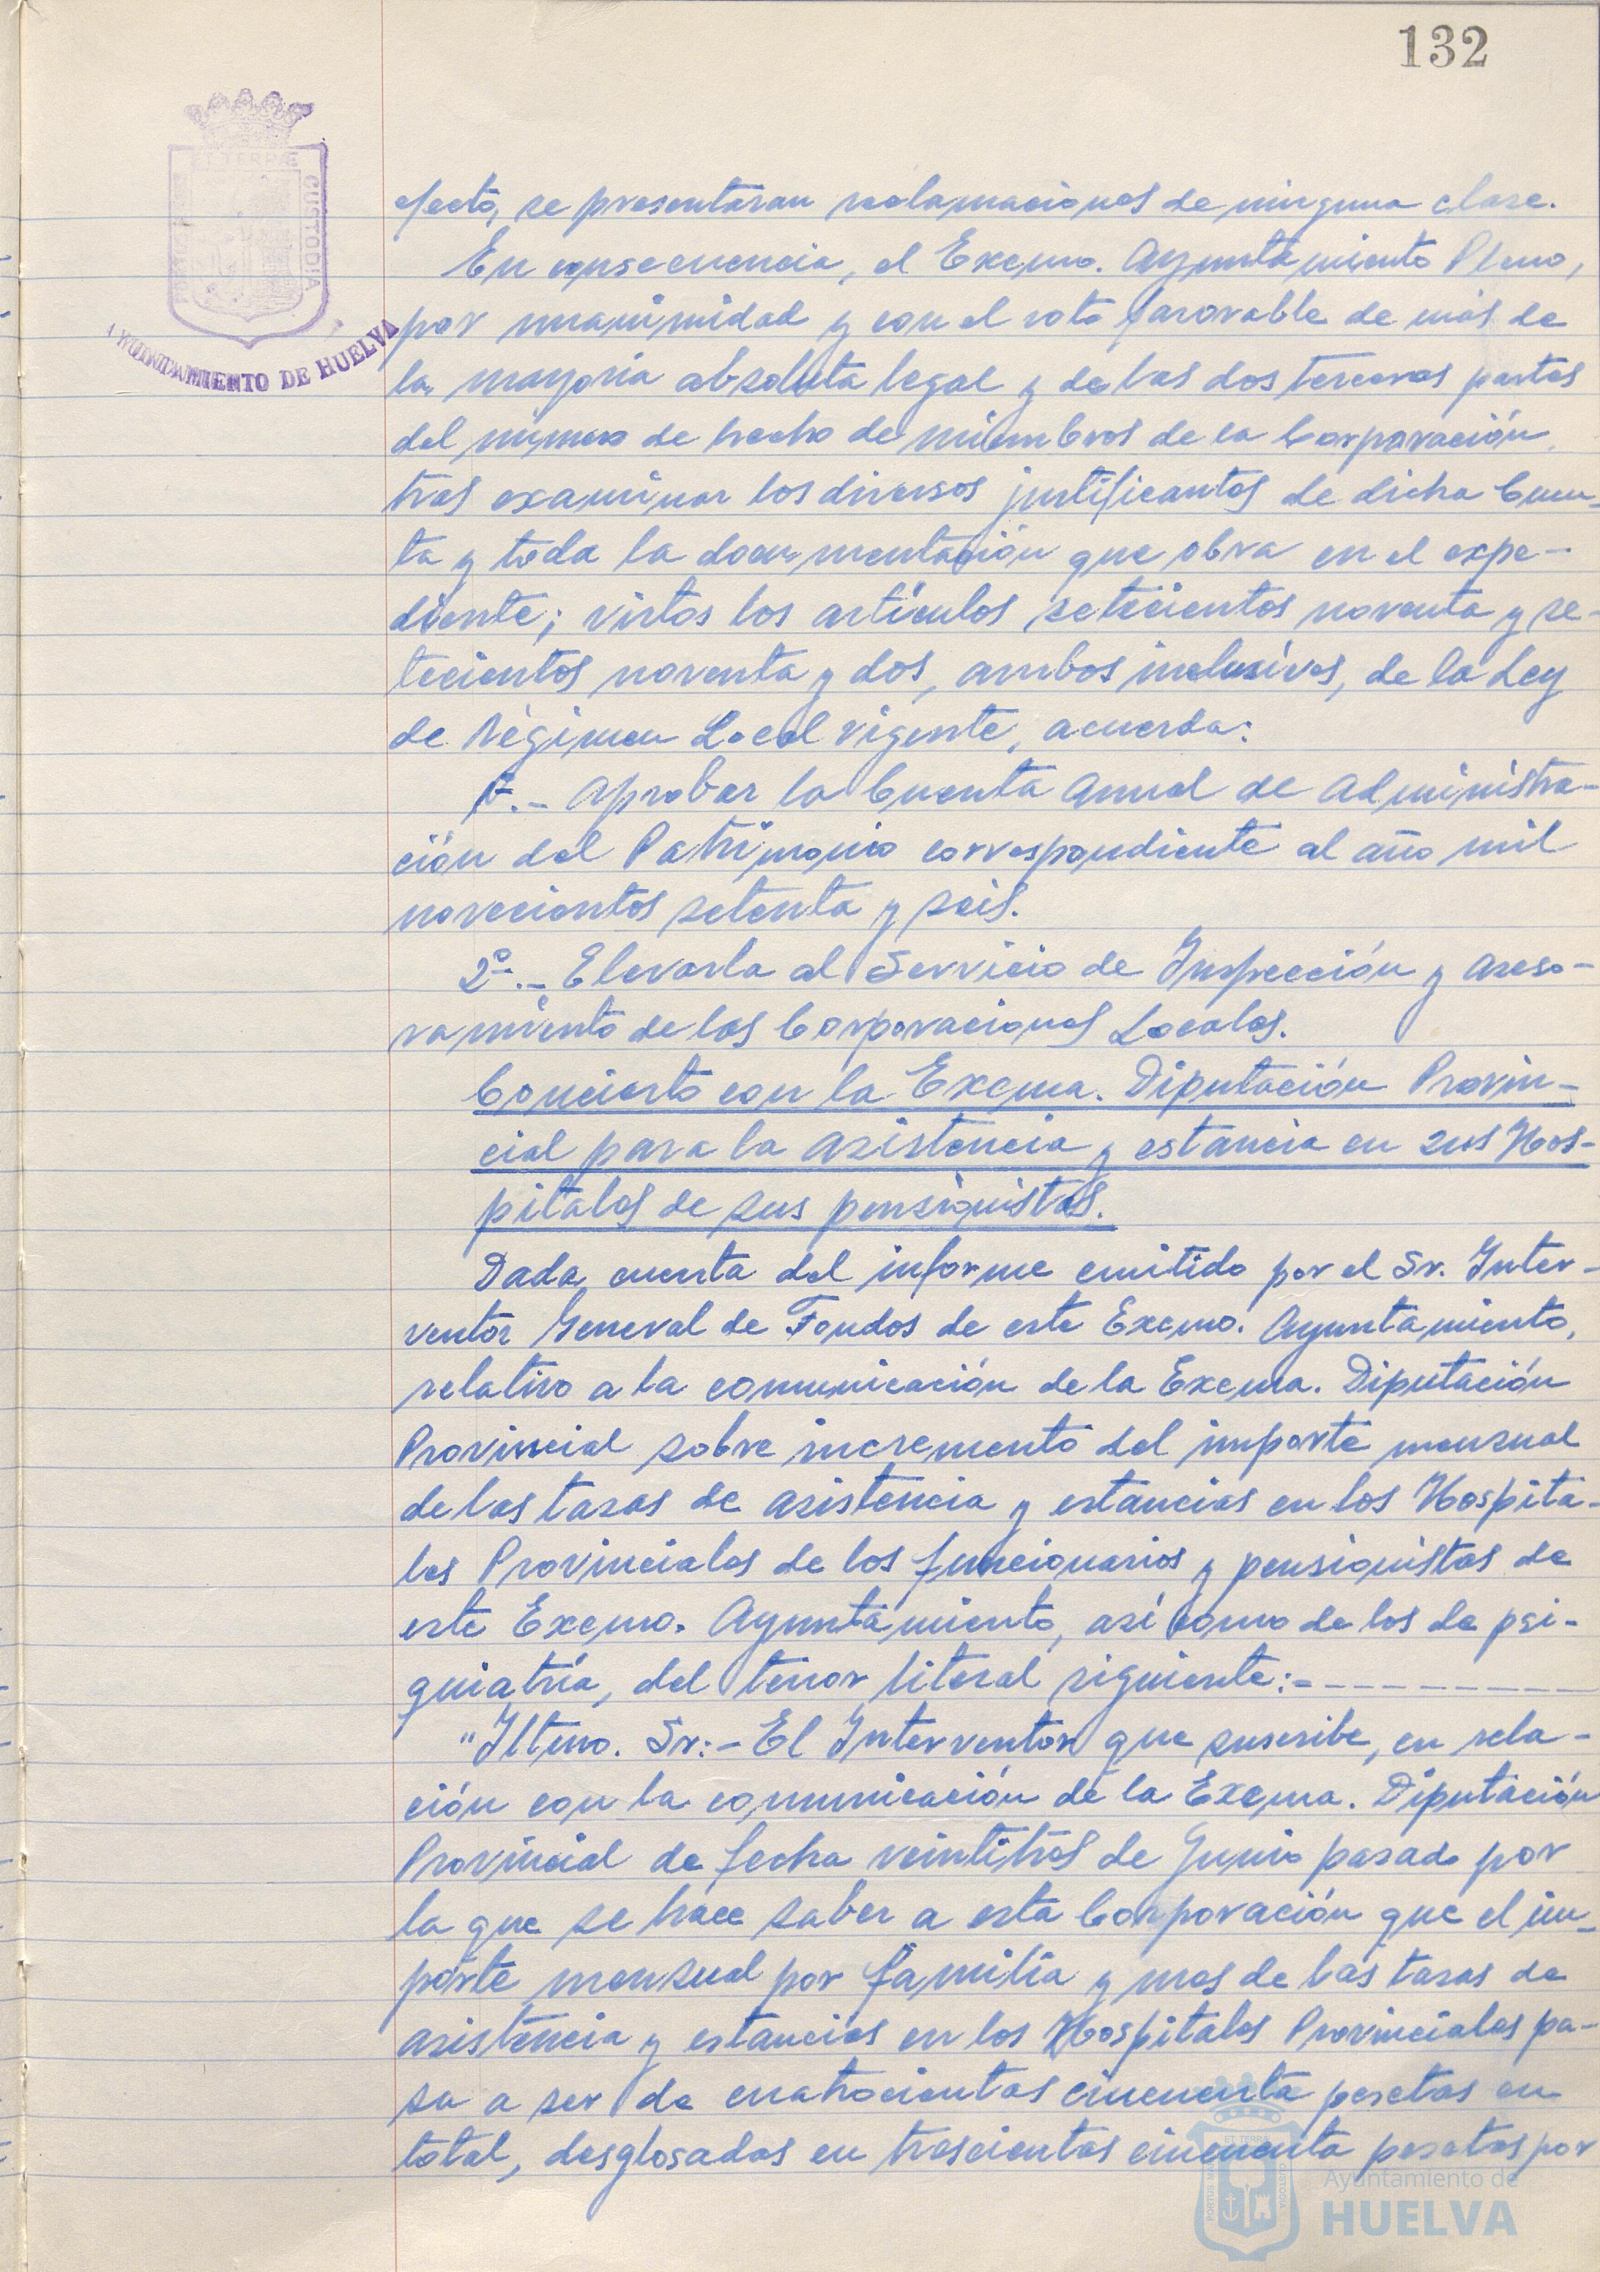 132
ET TERRÆ
CUSTODIA
AYUNTAMIENTO DE HUELVA
efecto, se presentaran reclamaciones de ninguna clase.
En consecuencia, el Excmo. Ayuntamiento Pleno,
por unanimidad y con el voto favorable de más de
la mayoria absoluta legal y de las dos terceras partes
del número de hecho de miembros de la Corporación,
tras examinar los diversos justificantes de dicha Cuen-
ta y toda la documentación que obra en el expe-
diente; vistos los artículos setecientos noventa y se-
tecientos noventa y dos, ambos inclusives, de la Ley
de Régimen Local vigente, acuerda:
1º.- Aprobar la Cuenta Anual de Administra-
ción del Patrimonio correspondiente al año mil
novecientos setenta y seis.
2º.- Elevarla al Servicio de Inspección y Aseso-
ramiento de las Corporaciones Locales.
Concierto con la Excma. Diputación Provin-
cial para la asistencia y estancia en sus Hos-
pitales de sus pensionistas.
Dada cuenta del informe emitido por el Sr. Inter-
ventor General de Fondos de este Excmo. Ayuntamiento,
relativo a la comunicación de la Excma. Diputación
Provincial sobre incremento del importe mensual
de las tasas de asistencia y estancias en los Hospita-
les Provinciales de los funcionarios y pensionistas de
este Excmo. Ayuntamiento, así como de los de psi-
quiatría, del tenor literal siguiente:---------
"Iltmo. Sr:- El Interventor que suscribe, en rela-
ción con la comunicación de la Excma. Diputación
Provincial de fecha veintitrés de Junio pasado por
la que se hace saber a esta Corporación que el im-
porte mensual por familia y mes de las tasas de
asistencia y estancias en los Hospitales Provinciales pa-
sa a ser de cuatrocientas cincuenta pesetas en
total, desglosadas en trescientas cincuenta pesetas por
Ayuntamiento de
HUELVA